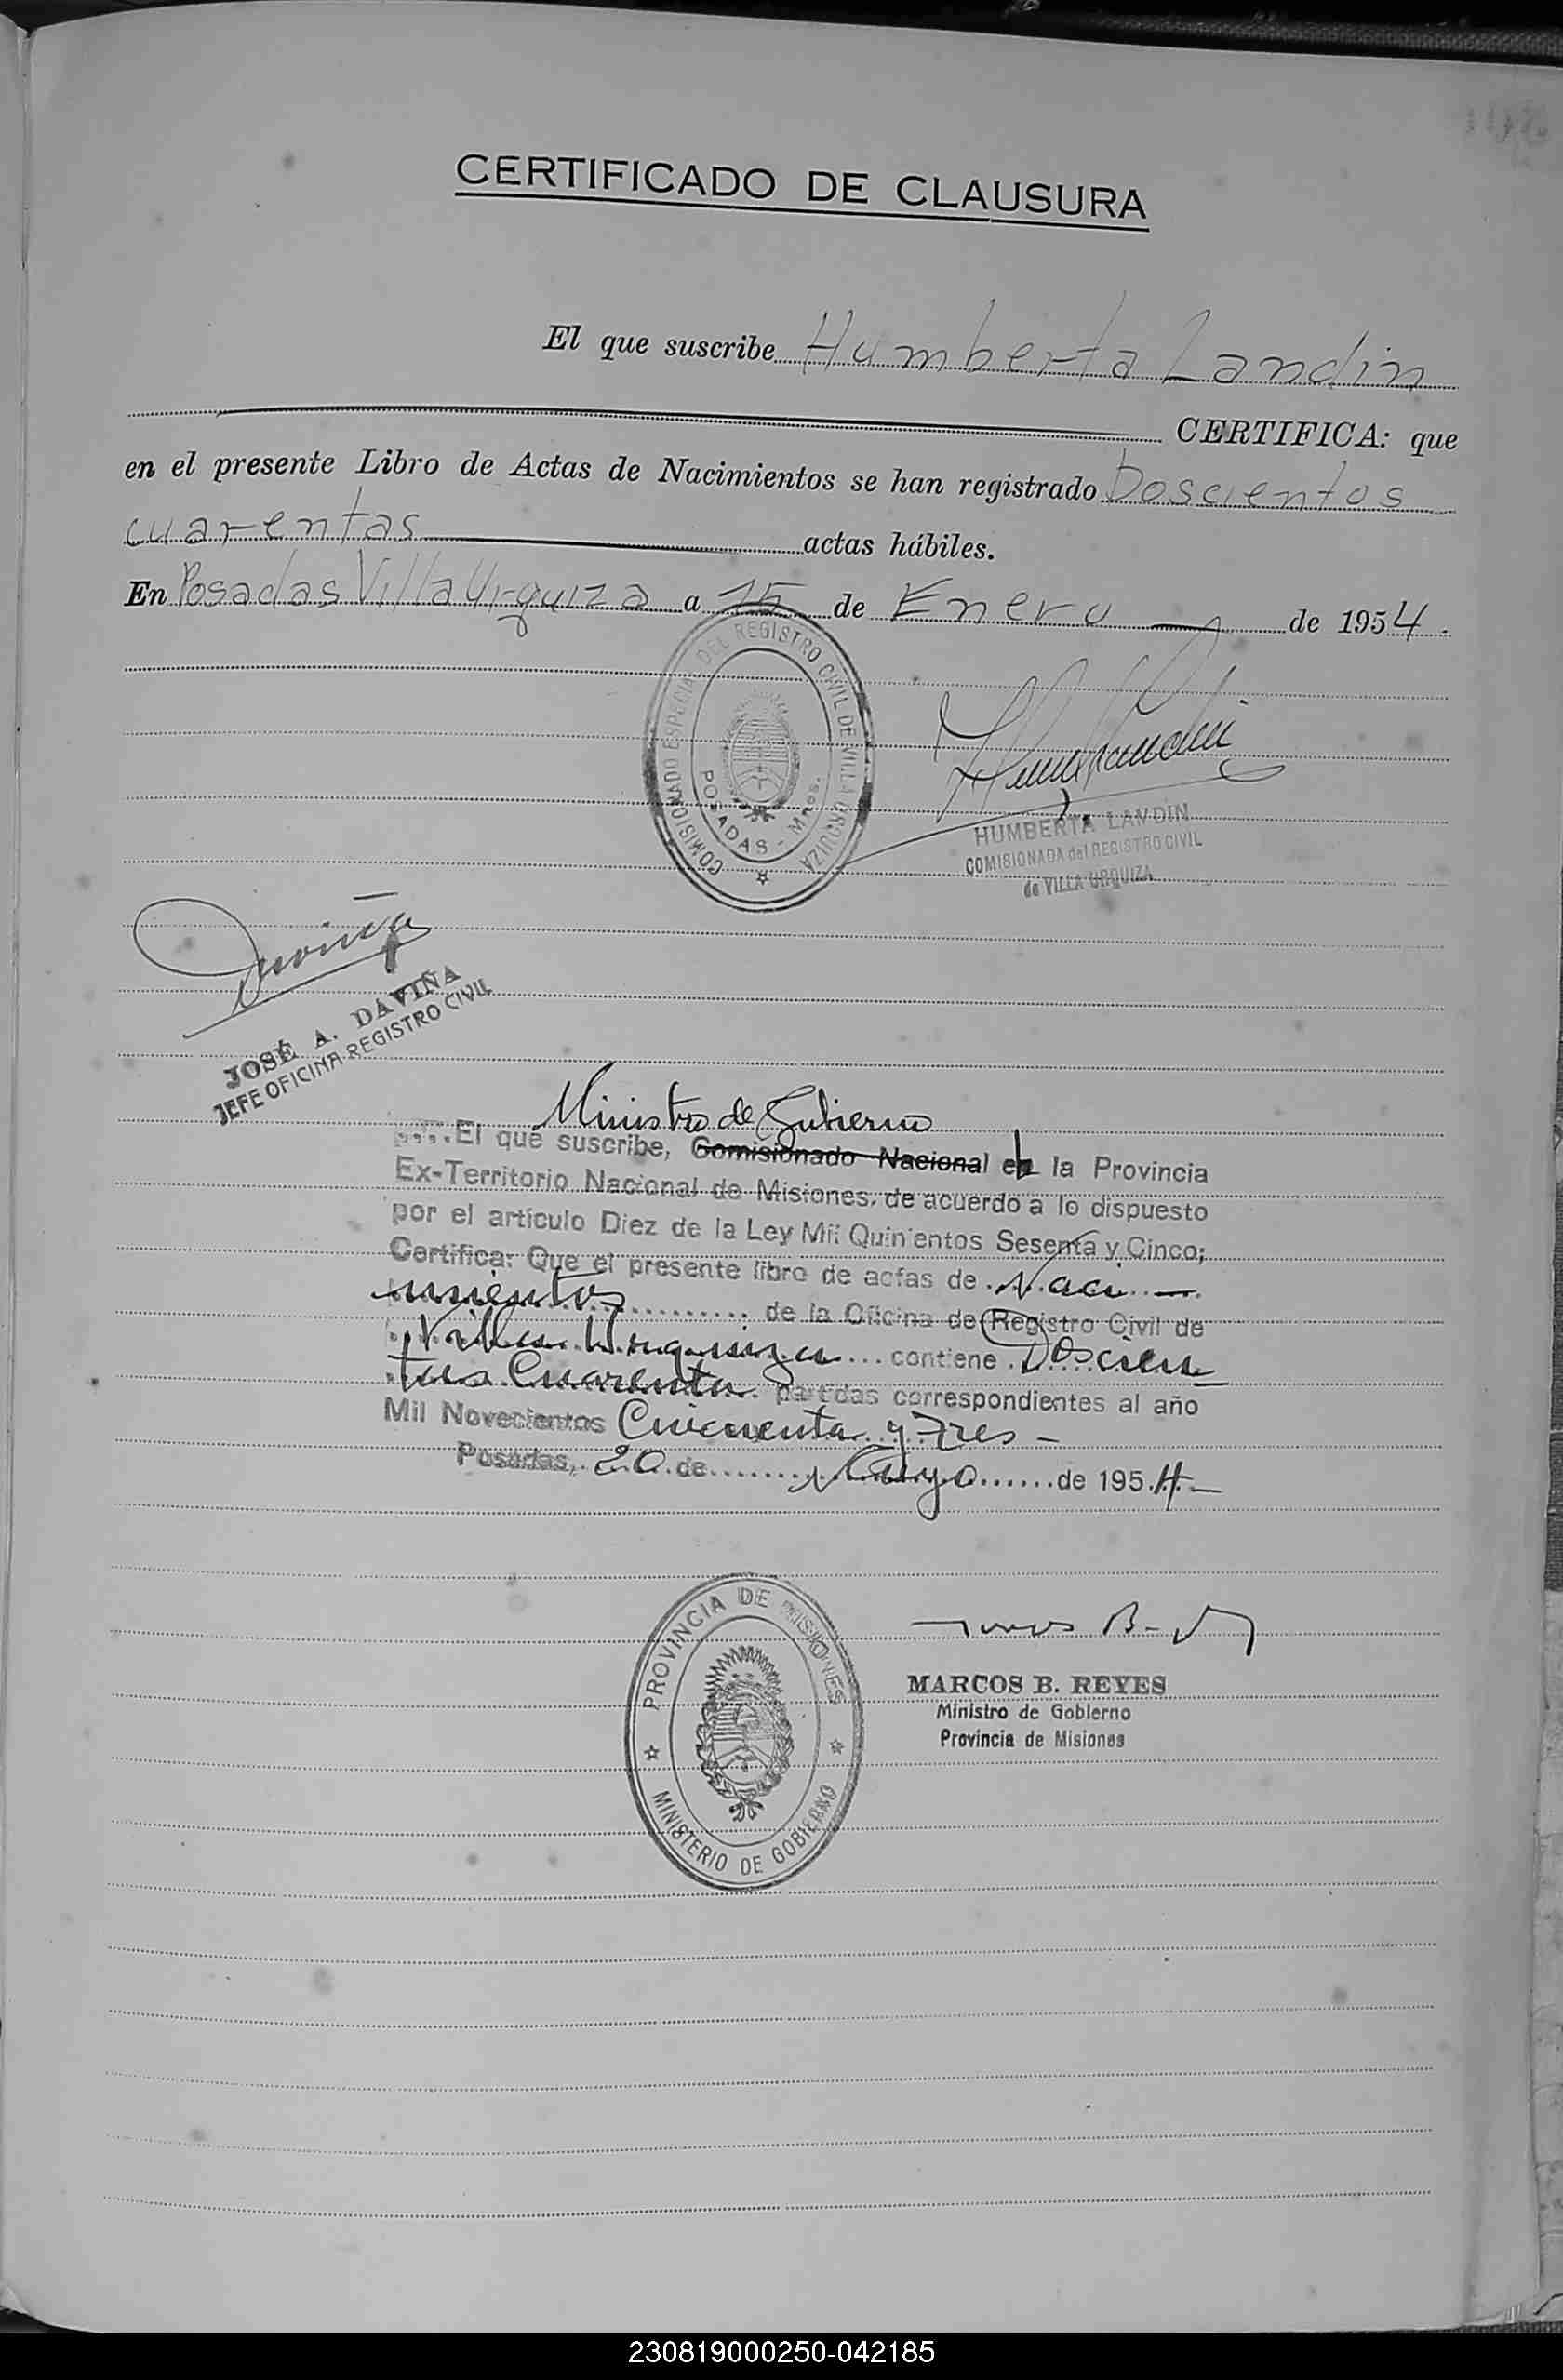 CERTIFICADO DE CLAUSURA
El que suscribe Humberta Landin
CERTIFICA: que
en el presente Libro de Actas de Nacimientos se han registrado Doscientos
cuarentas actas hábiles.
En Posadas Villa Urquiza a 15 de Enero de 1954.
COMISIONADO ESPECIAL DEL REGISTRO CIVIL DE VILLA URQUIZA
POSADAS - Mnes.
HUMBERTA LANDIN
COMISIONADA del REGISTRO CIVIL
de VILLA URQUIZA
Daviña
JOSÉ A. DAVIÑA
JEFE OFICINA REGISTRO CIVIL
Ministro de Gobierno
El que suscribe, Comisionado Nacional en la Provincia
Ex-Territorio Nacional de Misiones, de acuerdo a lo dispuesto
por el artículo Diez de la Ley Mil Quinientos Sesenta y Cinco;
Certifica: Que el presente libro de actas de Naci
mientos de la Oficina de Registro Civil de
Villa Urquiza contiene Doscien
tas Cuarenta partidas correspondientes al año
Mil Novecientos Cincuenta y Tres -
Posadas, 20 de Mayo de 1954 -
PROVINCIA DE MISIONES
MINISTERIO DE GOBIERNO
MARCOS B. REYES
Ministro de Gobierno
Provincia de Misiones
230819000250-042185